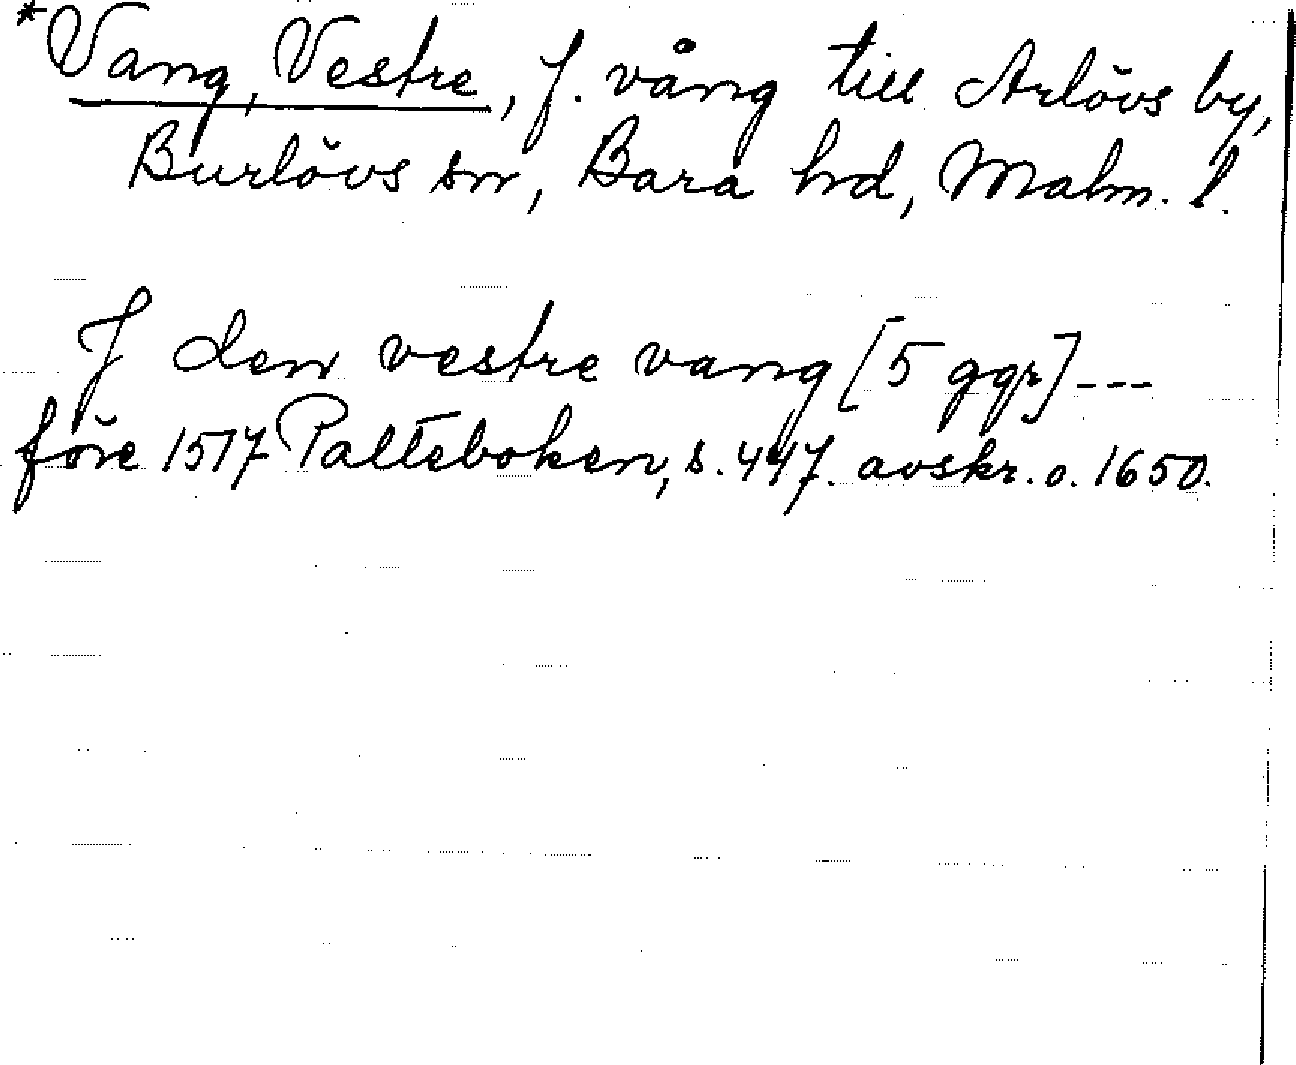 *Vang, Vestre, f. vång till Arlövs by,
Burlövs sn, Bara hd, Malm. l.
J den vestre vang [5 ggr] ---
före 1517 Palteboken, s. 447. avskr. o. 1650.